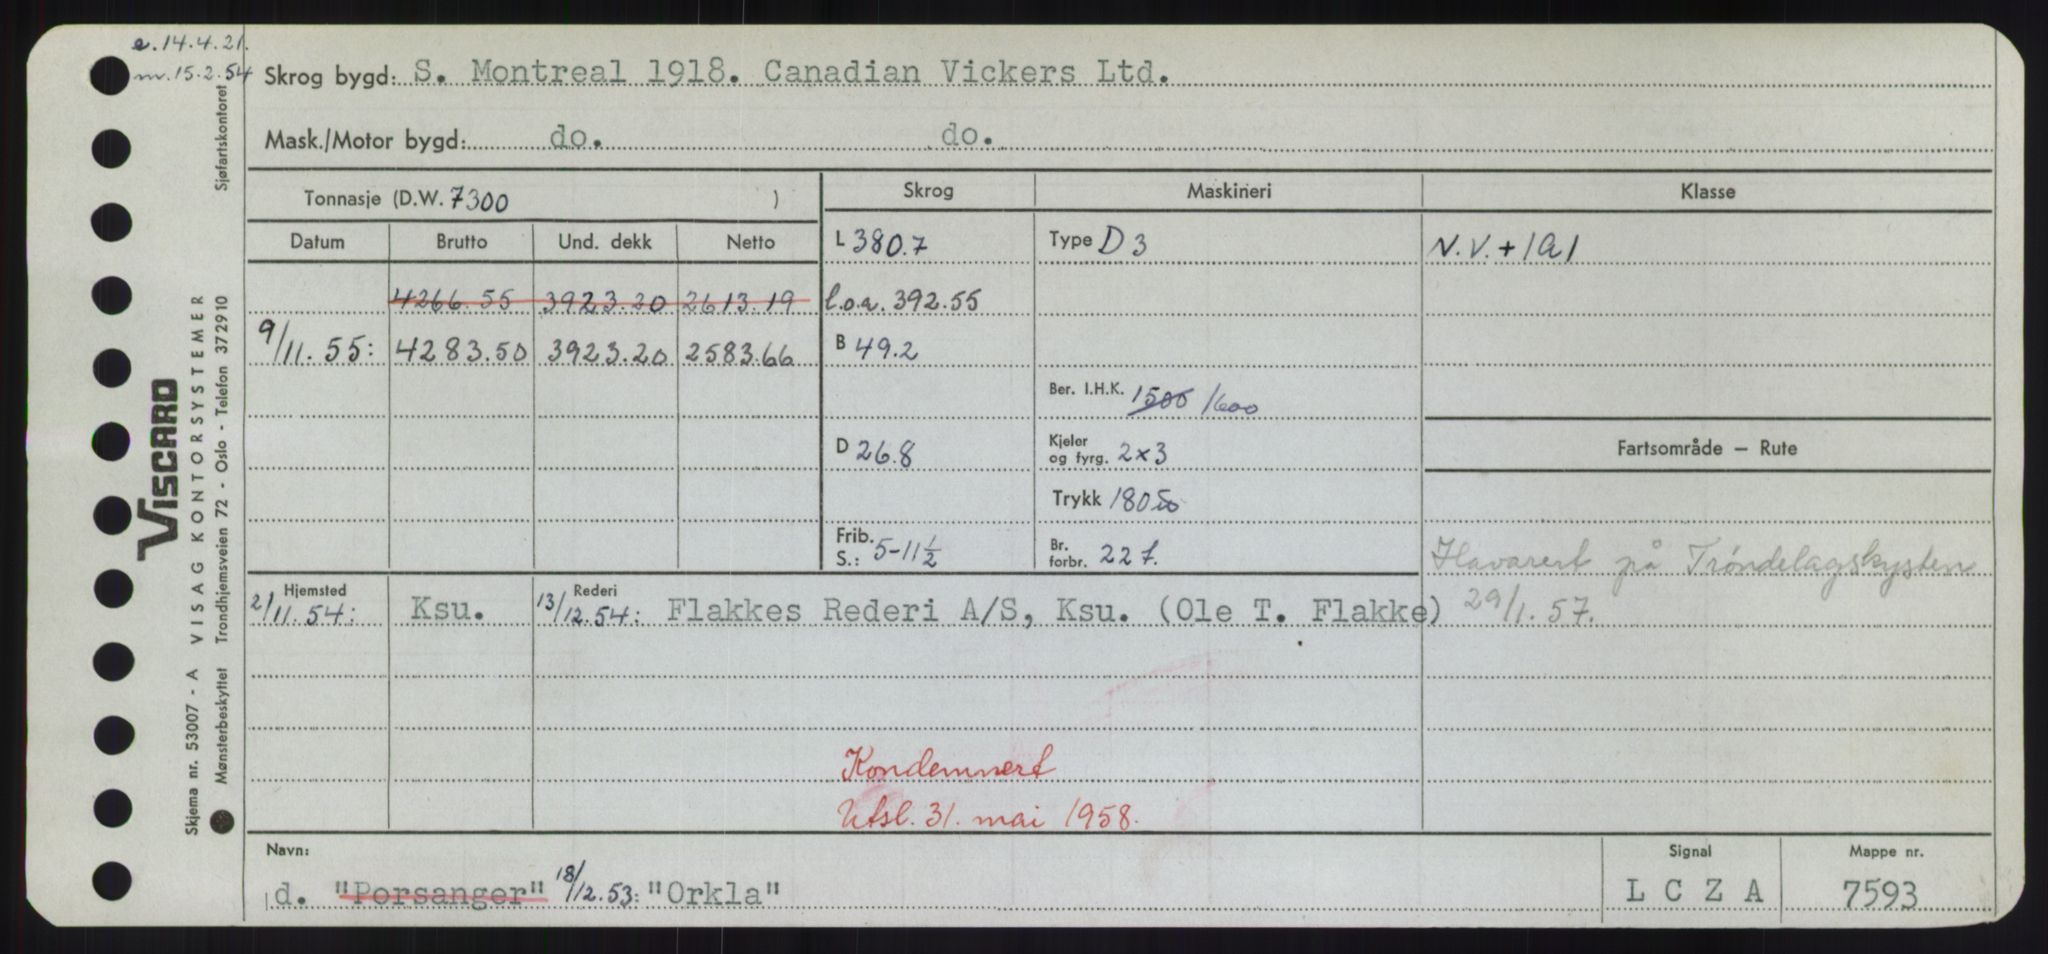 e. 14.4.21.
m. 15.2.54
Skrog bygd: S. Montreal 1918. Canadian Vickers Ltd.
Mask./Motor bygd: do. do.
Tonnasje (D.W. 7300 )
Skrog Maskineri Klasse
Datum Brutto Und. dekk Netto
L 380.7 Type D 3 N.V. + 1A1
4266.55 3923.20 2613.19 l.o.a. 392.55
9/11.55: 4283.50 3923.20 2583.66 B 49.2
Ber. I.H.K. 1500 1600
D 26.8 Kjeler og fyrg. 2x3 Fartsområde – Rute
Trykk 180
Frib. S.: 5-11½ Br. forbr. 22 t.
Havarert på Trøndelagskysten
29/1.57.
Hjemsted Rederi
2/11.54: Ksu. 13/12.54: Flakkes Rederi A/S, Ksu. (Ole T. Flakke)
Kondemnert
Utsl. 31. mai 1958.
Navn: Signal Mappe nr.
d. "Porsanger" 18/12.53: "Orkla" L C Z A 7593
VISCARD
Skjema nr. 53007 - A VISAG KONTORSYSTEMER
Mønsterbeskyttet Trondhjemsveien 72 - Oslo - Telefon 372910
Sjøfartskontoret